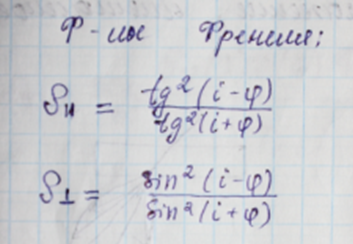 Ф-лы Френеля:
S₁₁ = tg²(i-φ) / tg²(i+φ)
S⊥ = sin²(i-φ) / sin²(i+φ)